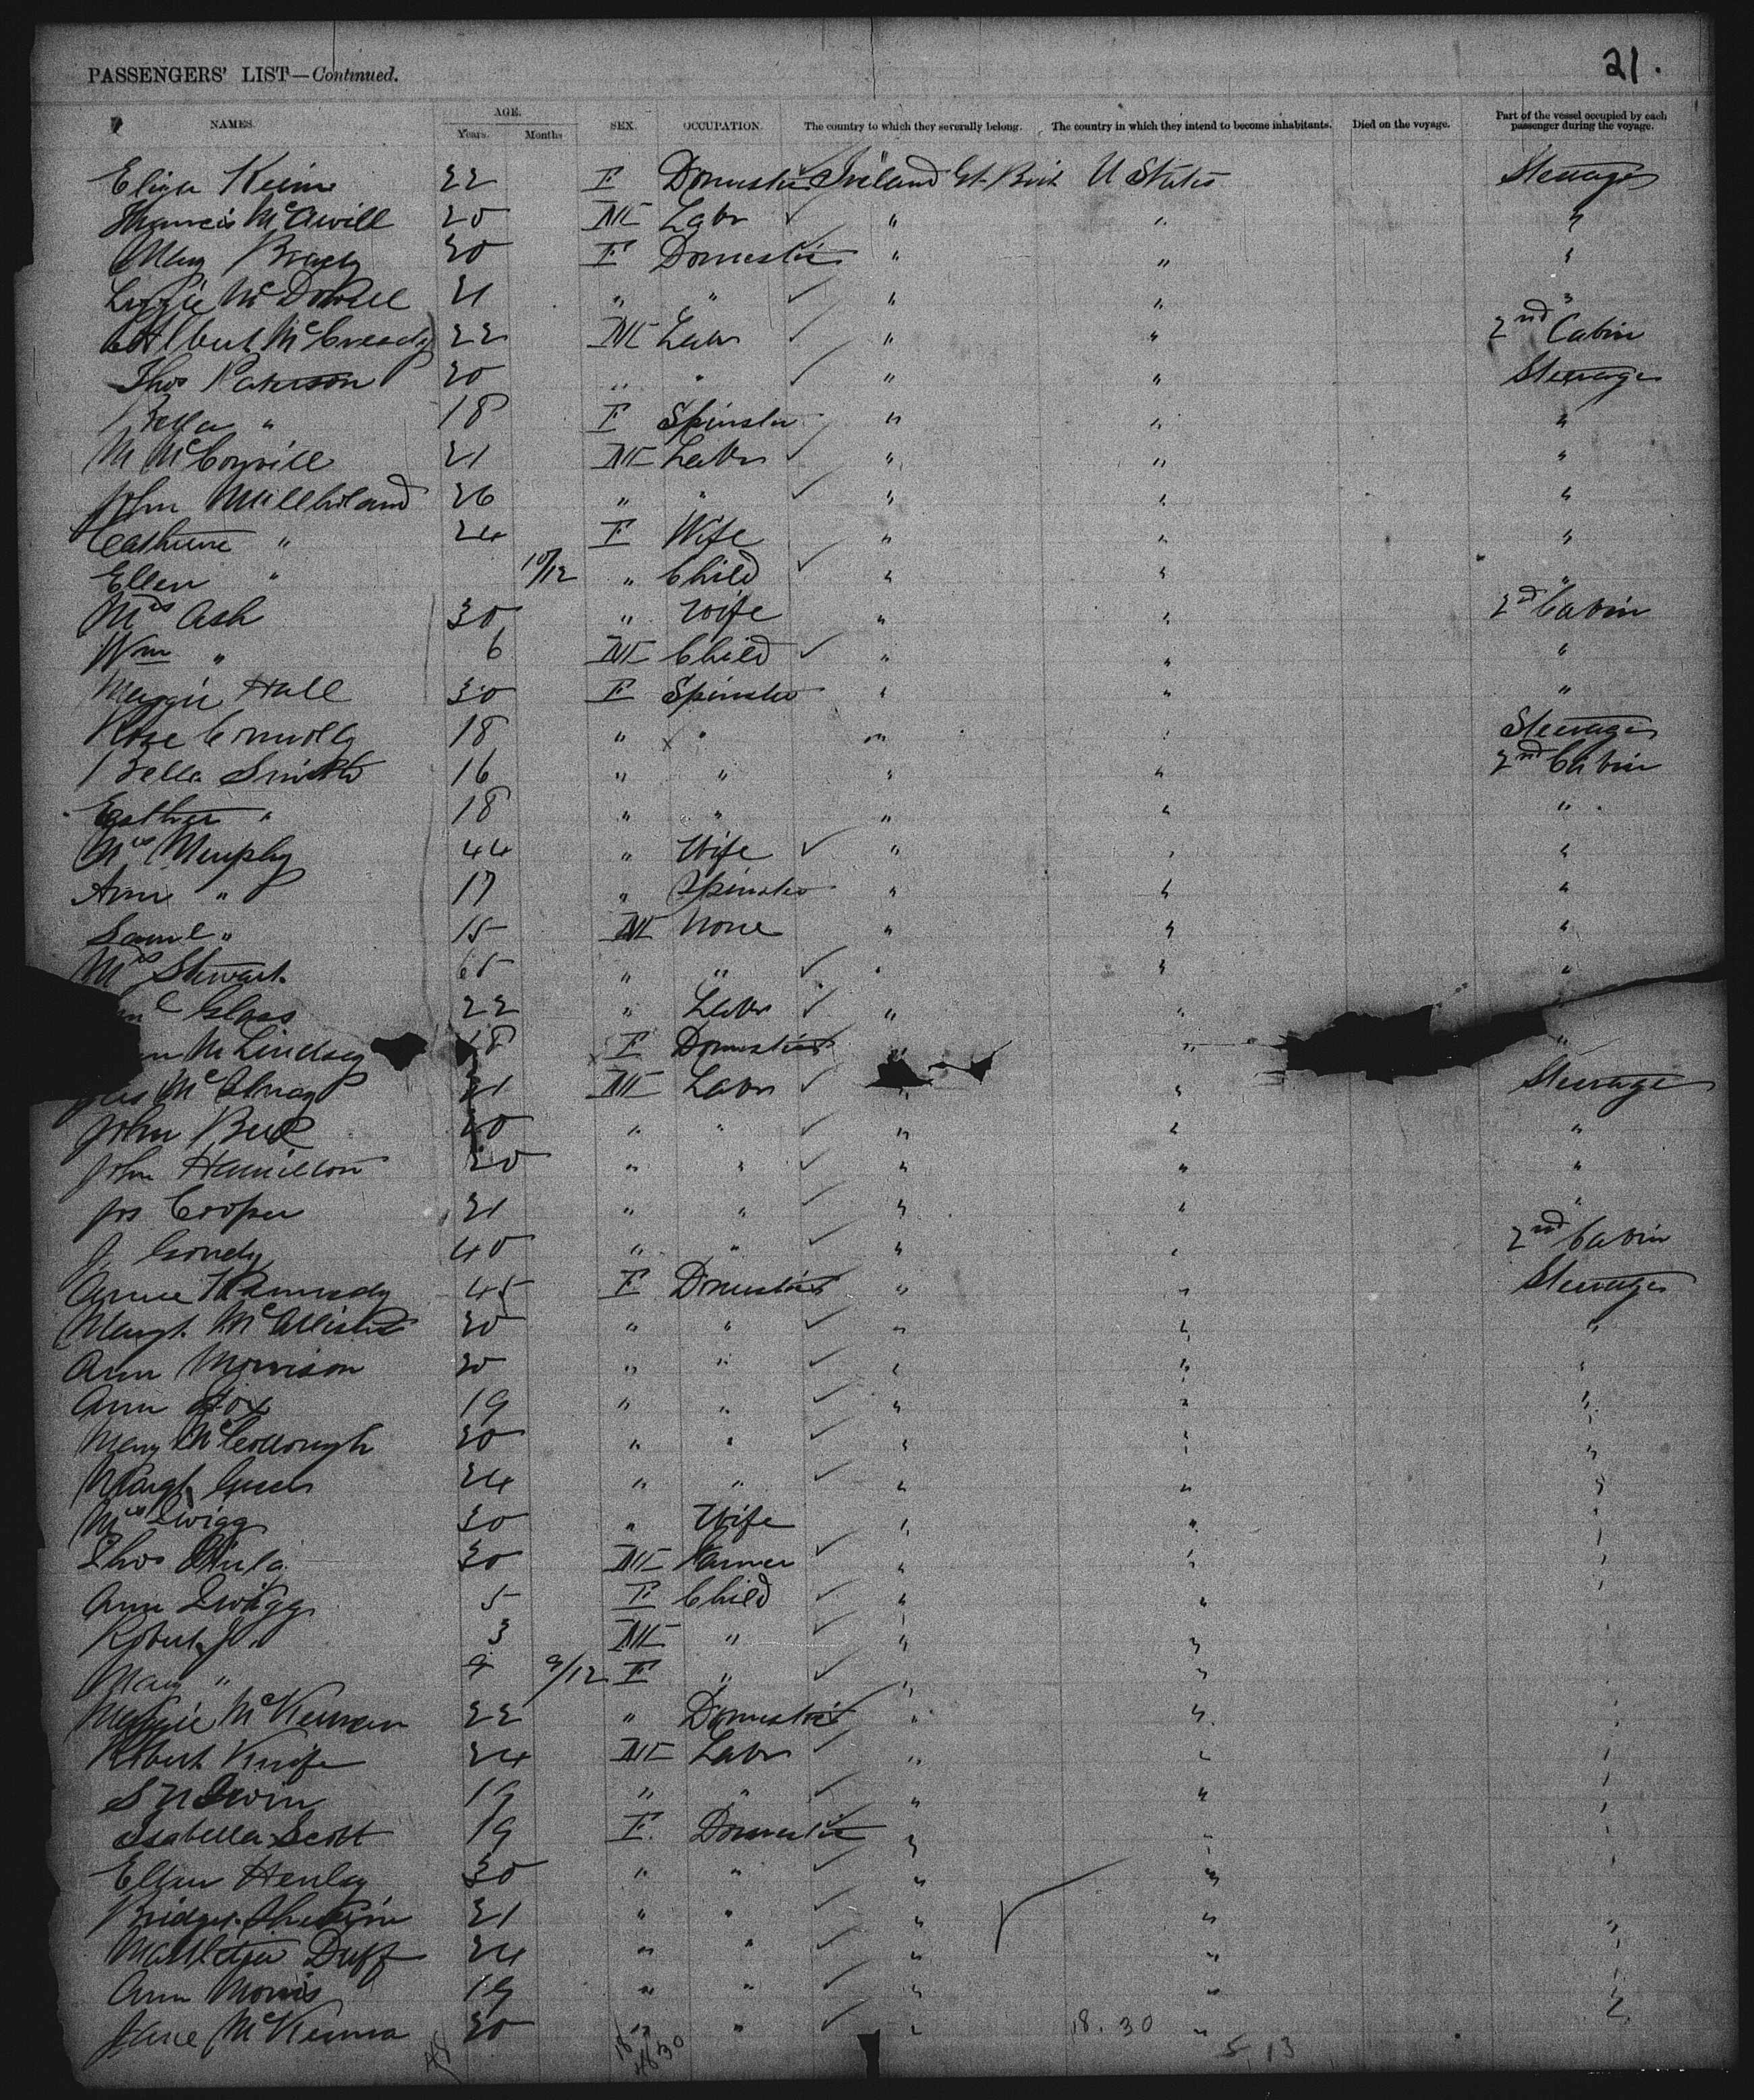 21.
PASSENGERS' LIST—Continued.
NAMES. AGE. Years. Months SEX. OCCUPATION. The country to which they severally belong. The country in which they intend to become inhabitants. Died on the voyage. Part of the vessel occupied by each passenger during the voyage.
Eliza 22 F Domestic Ireland Gt. Brit U States Steerage
Francis 20 M Labr " " "
Mary Brady 20 F Domestic " " "
Lizzie McDowell 21 " " " " "
Albert McCready 22 M Labr " " 2nd Cabin
Thos Paterson 20 " " " " Steerage
Bella " 18 F Spinster " " "
M 21 M Labr " " "
John Mullholand 26 " " " " "
Catherine " 24 F Wife " " "
Ellen " 10/12 " Child " " "
Mrs Ash 30 " Wife " " 2nd Cabin
Wm " 6 M Child " " "
Maggie Hall 30 F Spinster " " "
Rose Connolly 18 " " " " Steerage
Bella Smith 16 " " " " 2nd Cabin
Esther " 18 " " " " "
Mrs Murphy 44 " Wife " " "
Ann " 17 " Spinster " " "
Saml " 15 M None " " "
Mrs Stewart 65 " " " " "
Glass 22 " Labr " " "
M Lindsay 18 F Domestic " " "
21 M Labr " " Steerage
John 20 " " " " "
John Hamilton 20 " " " " "
Jos Cooper 21 " " " " "
J. 40 " " " " 2nd Cabin
Annie Kennedy 45 F Domestic " " Steerage
Margt. McAllister 20 " " " " "
Ann Morrison 20 " " " " "
Ann Fox 19 " " " " "
Mary McCollough 20 " " " " "
Margt. 24 " " " " "
Mrs Twigg 30 " Wife " " "
Thos 30 M Farmer " " "
Ann Twigg 5 F Child " " "
Robert 3 M " " " "
Mary " 9/12 F " " "
Maggie McKernan 22 " Domestic " " "
Robert 24 M Labr " " "
S Irwin 19 " " " " "
Isabella Scott 19 F. Domestic " " "
Ellen Henley 30 " " " "
Bridget 21 " " " " "
Duff 24 " " " " "
Ann Morris 19 " " " " "
Jane McKenna 20 " " " " "
18. 30
48 18 30 48 5 13